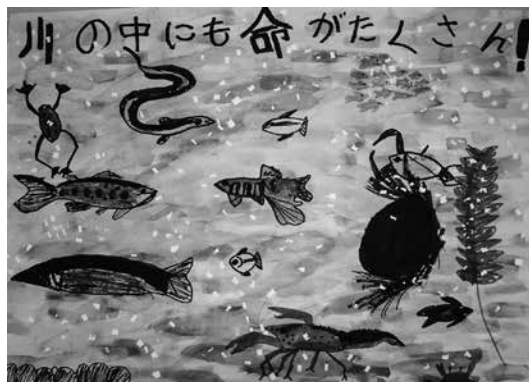 川の中にも命がたくさん!